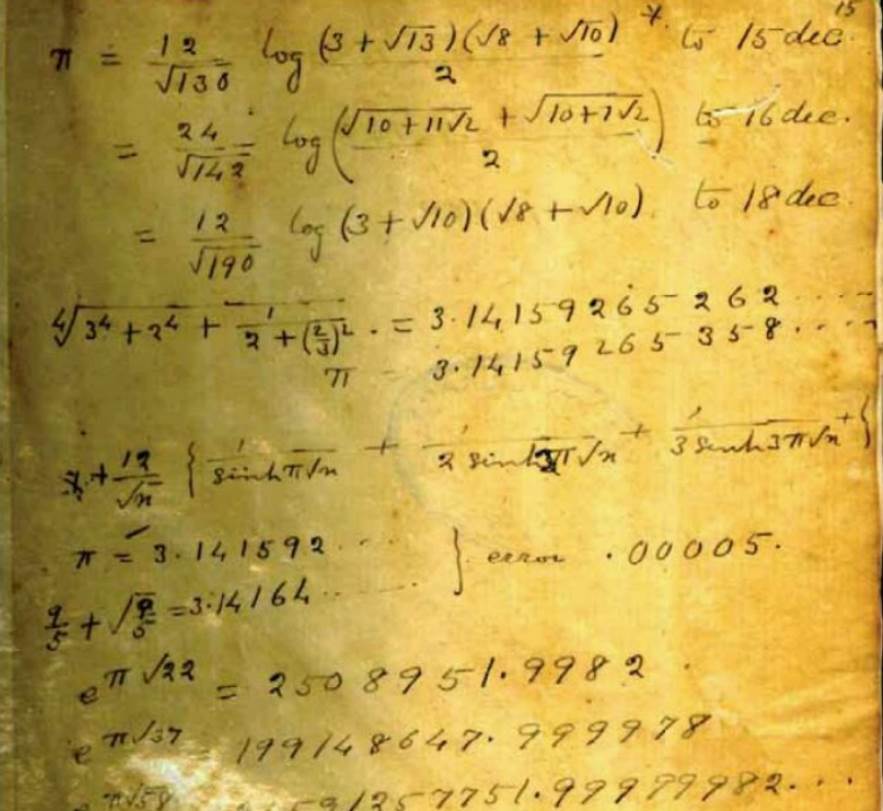 15
π = 12/√130 log (3 + √13)(√8 + √10)/2 * to 15 dec.
= 24/√142 log (√(10 + 11√2) + √(10 + 7√2))/2 to 16 dec.
= 12/√190 log (3 + √10)(√8 + √10) to 18 dec.
∜(3⁴ + 2⁴ + 1/(2 + (2/3)²)) = 3.14159265262.....
π 3.14159265358....
+ 12/√n { 1/sinh π√n + 1/2 sinh 2π√n + 1/3 sinh 3π√n + }
π = 3.141592....
9/5 + √9/5 = 3.14164....... } error .00005.
e^π√22 = 2508951.9982.
e^π√37 199148647.999978
e^π√58 591257751.99999982...